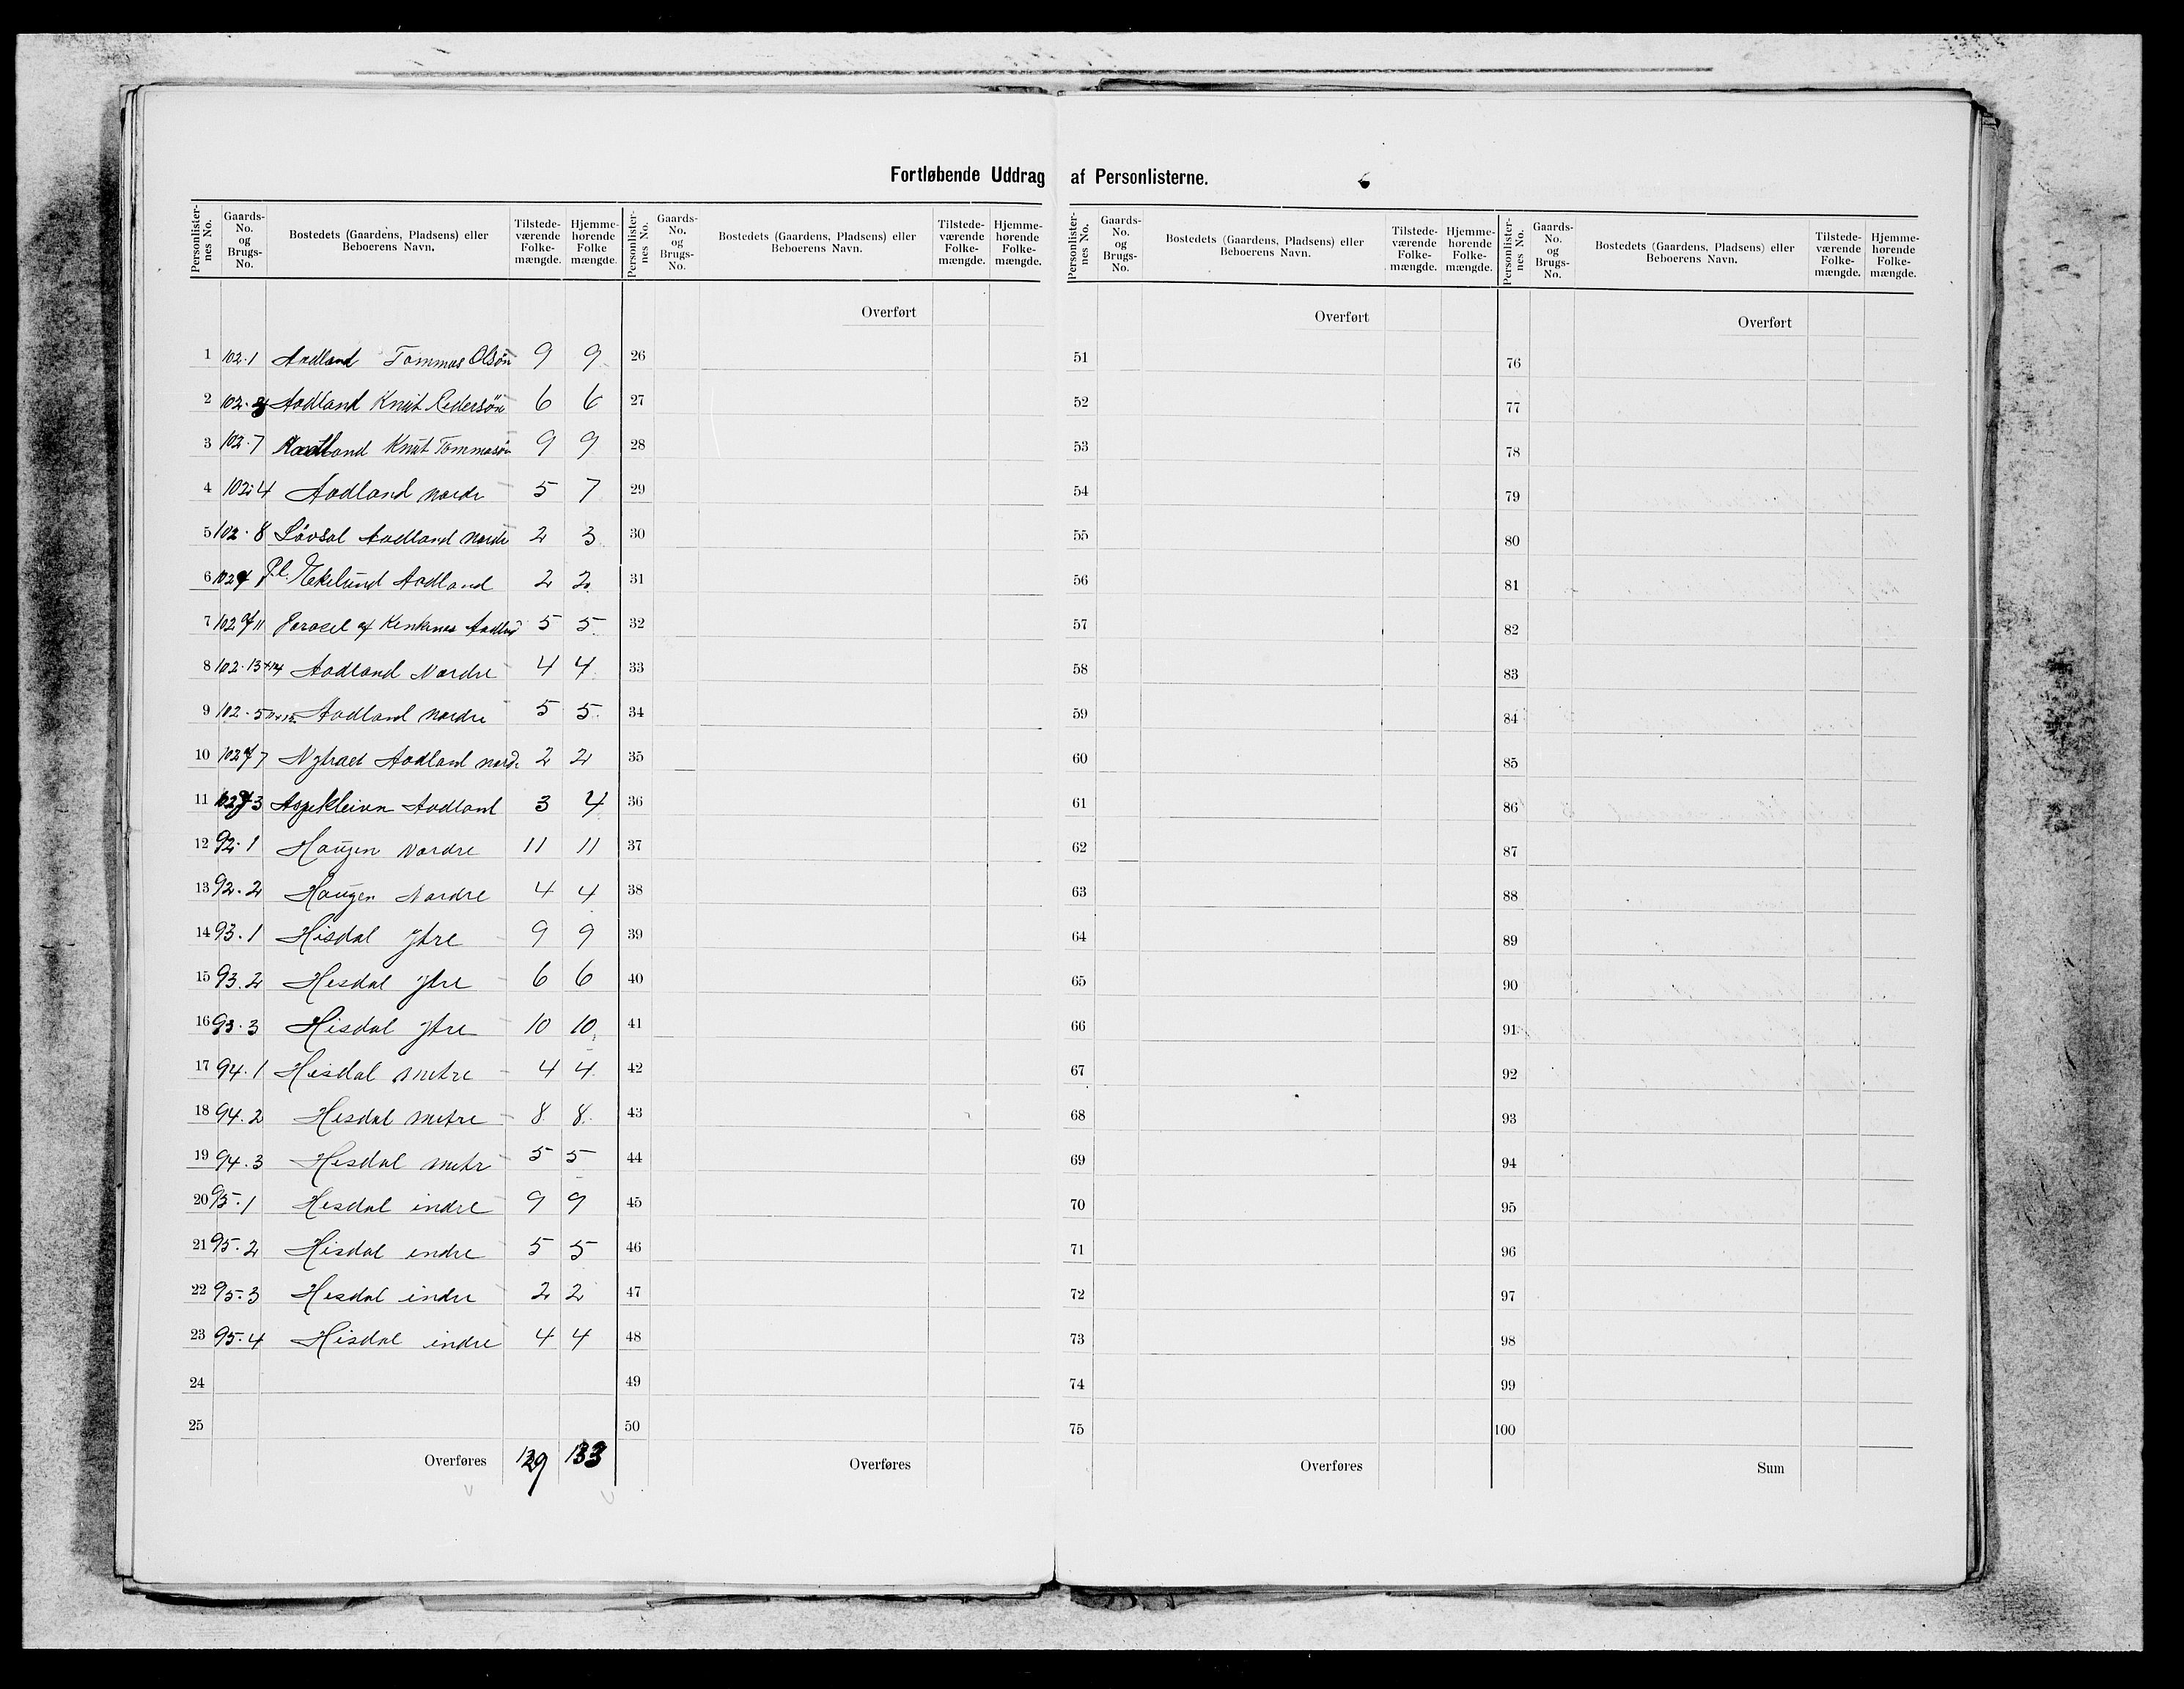 Fortløbende Uddrag af Personlisterne.
Personlister-nes No. Gaards-No. og Brugs-No. Bostedets (Gaardens, Pladsens) eller Beboerens Navn. Tilstede-værende Folke-mængde. Hjemme-hørende Folke mængde.
Personlister-nes No. Gaards-No. og Brugs-No. Bostedets (Gaardens, Pladsens) eller Beboerens Navn. Tilstede-værende Folke-mængde. Hjemme-hørende Folke-mængde.
Personlister-nes No. Gaards-No. og Brugs-No. Bostedets (Gaardens, Pladsens) eller Beboerens Navn. Tilstede-værende Folke-mængde. Hjemme-hørende Folke-mængde.
Personlister-nes No. Gaards-No. og Brugs-No. Bostedets (Gaardens, Pladsens) eller Beboerens Navn. Tilstede-værende Folke-mængde. Hjemme-hørende Folke-mængde.
Overført Overført Overført
1 102.1 Aadland Tommas Olsøn 9 9 26 51 76
2 102. Aadland Knut Pedersøn 6 6 27 52 77
3 102.7 Aadland Knut Tommasøn 9 9 28 53 78
4 102.4 Aadland nordr 5 7 29 54 79
5 102.8 Løvsal Aadland Nordr 2 3 30 55 80
6 102 Pl. Ekelund Aadland 2 2 31 56 81
7 102 af 11 Parcel af Aadland 5 5 32 57 82
8 102.13+14 Aadland Nordre 4 4 33 58 83
9 102.5 Aadland Nordre 5 5 34 59 84
10 102 af 7 Aadland nord 2 2 35 60 85
11 102 af 3 Aspekleiven Aadland 3 4 36 61 86
12 92.1 Haugen Nordre 11 11 37 62 87
13 92.2 Haugen Nordre 4 4 38 63 88
14 93.1 Hisdal Ytre 9 9 39 64 89
15 93.2 Hisdal Ytre 6 6 40 65 90
16 93.3 Hisdal Ytre 10 10 41 66 91
17 94.1 Hisdal Mitre 4 4 42 67 92
18 94.2 Hisdal mitre 8 8 43 68 93
19 94.3 Hisdal mitr 5 5 44 69 94
20 95.1 Hisdal indre 9 9 45 70 95
21 95.2 Hisdal indre 5 5 46 71 96
22 95.3 Hisdal indre 2 2 47 72 97
23 95.4 Hisdal indre 4 4 48 73 98
24 49 74 99
25 50 75 100
Overføres 129 133 Overføres Overføres Sum